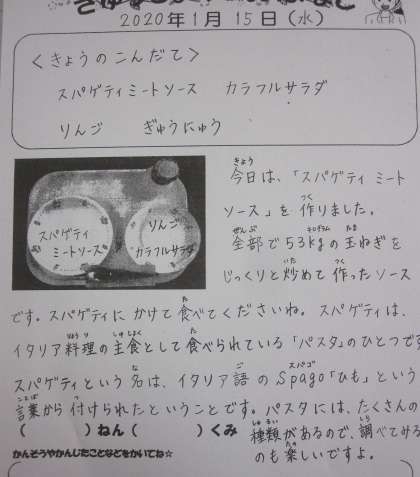 2020年1月15日(水)
<きょうのこんだて>
スパゲティミートソース カラフルサラダ
りんご ぎゅうにゅう
スパゲティ
ミートソース
りんご
カラフルサラダ
きょう
今日は、「スパゲティ ミート
つく
ソース」を 作りました。
ぜんぶ キログラム たま
全部で53kgの玉ねぎを
いた つく
じっくりと炒めて 作ったソース
た
です。スパゲティに かけて 食べてくださいね。スパゲティは、
りょうり しゅしょく た
イタリア料理の主食として食べられている「パスタ」のひとつです
な ご スパゴ
スパゲティという 名は、イタリア語 の Spago「ひも」という
ことば つ
言葉から 付けられたということです。パスタには、たくさんの
( )ねん( )くみ
しゅるい しら
種類があるので、調べてみる
たの
のも楽しいですよ。
かんそうやかんじたことなどをかいてね☆